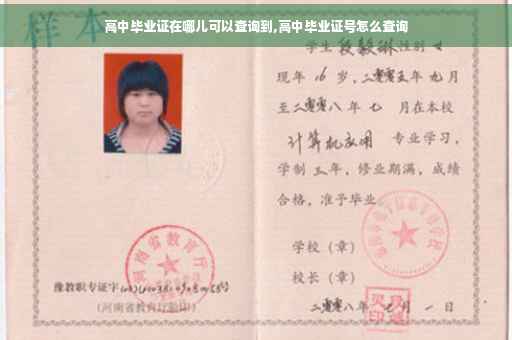 高中毕业证在哪儿可以查询到,高中毕业证号怎么查询
样本
学生 段毅琳 性别 女
现年 16 岁，二零零五年 九月
至二零零八年 七 月在本校
计算机应用 专业学习，
学制 三年，修业期满，成绩
合格，准予毕业
学校（章）
校长（章）
二零零八年 七月 一日
河南省教育厅
豫教职专证字
（河南省教育厅验印）